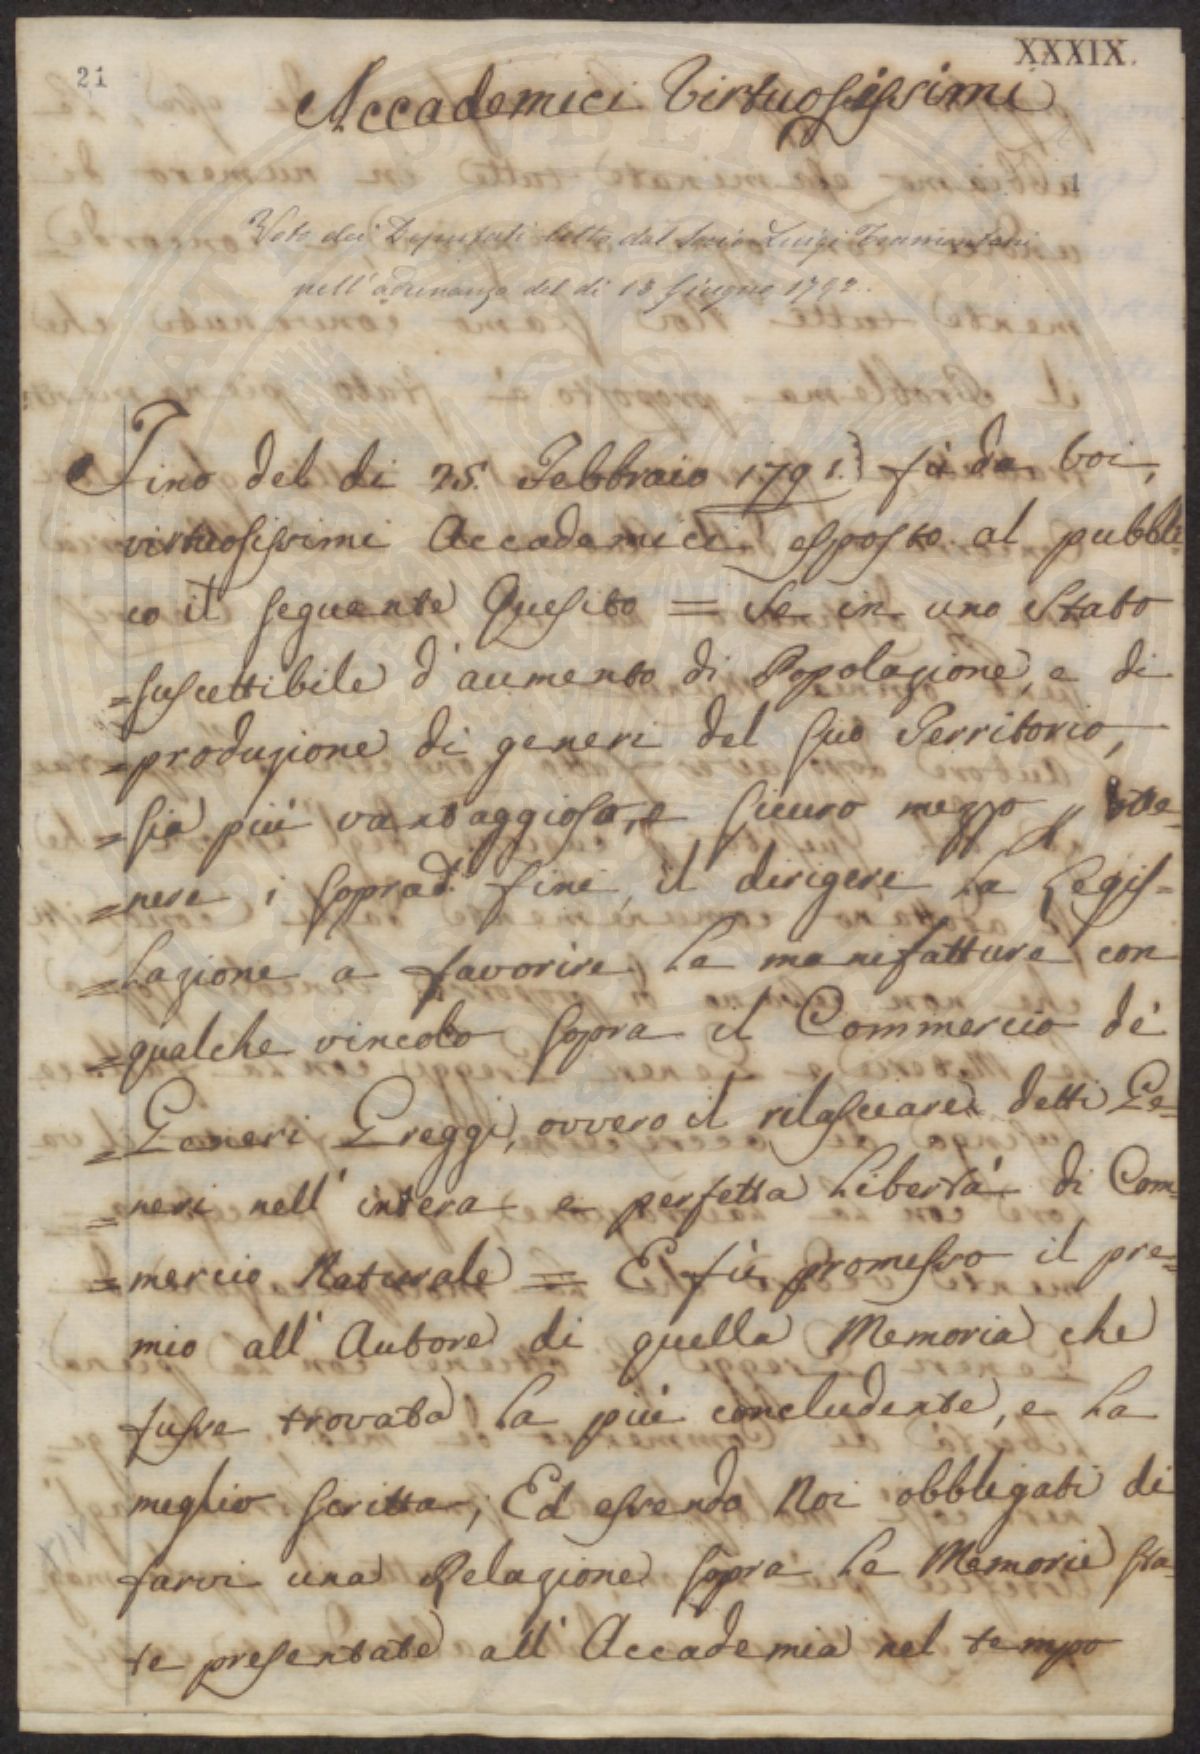 XXXIX.
21
Accademici Virtuosissimi
1
Voto dei Deputati letto dal Socio Luigi Tramontani
nell'adunanza del di 13 Giugno 1792.
Fino del di 25. Febbraio 1791. fù da Voi,
virtuosissimi Accademici esposto al pubbli-
co il seguente Quesito = Se in uno Stato
=suscettibile d'aumento di Popolazione, e di
=produzione di generi del suo Territorio,
=sia più vantaggioso, e sicuro mezzo p otte-
=nere i soprad.i fini, il dirigere la Legis-
=lazione a favorire le manifatture con
=qualche vincolo sopra il Commercio de'
=Generi Greggi, ovvero il rilasciare detti Ge-
=neri nell'intera e perfetta libertà di Com-
=mercio Naturale = E fù promesso il pre-
mio all'Autore di quella Memoria che
fusse trovata la più concludente, e la
meglio scritta, Ed essendo Noi obbligati di
farvi una Relazione sopra le Memorie sta-
te presentate all'Accademia nel tempo